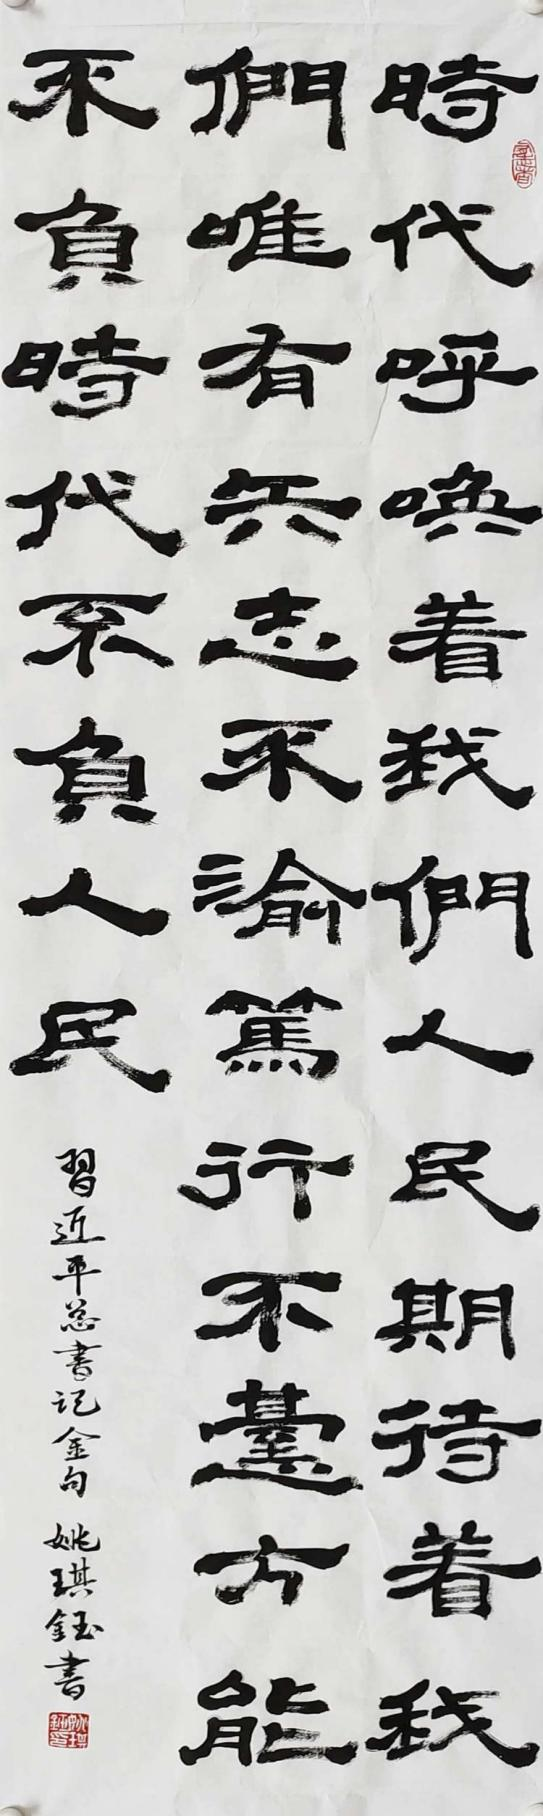 時代呼唤着我們人民期待着我
們唯有矢志不渝篤行不怠方能
不負時代不負人民
習近平总書记金句 姚琪鈺書